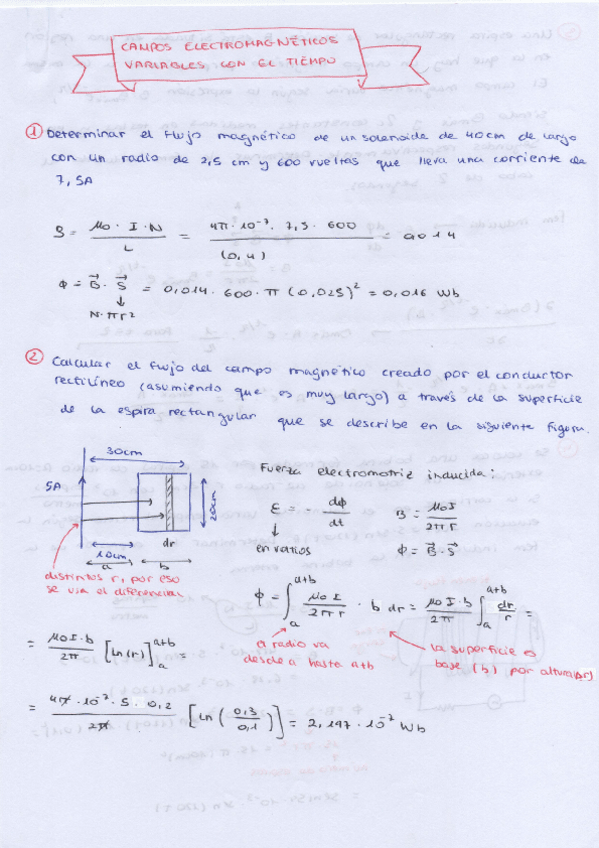 CAMPOS ELECTROMAGNÉTICOS
VARIABLES CON EL TIEMPO
① Determinar el flujo magnético de un solenoide de 40cm de largo
con un radio de 2,5 cm y 600 vueltas que lleva una corriente de
7,5A
B = μo · I · N / L = 4π · 10⁻⁷ · 7,5 · 600 / (0,4) = 0,014
Φ = B⃗ · S⃗ = 0,014 · 600 · π (0,025)² = 0,016 Wb
↓
N·πr²
② Calcular el flujo del campo magnético creado por el conductor
rectilíneo (asumiendo que es muy largo) a través de la superficie
de la espira rectangular que se describe en la siguiente figura.
30cm
5A
20cm
10cm
dr
a
b
distintos r, por eso
se usa el diferencial
Fuerza electromotriz inducida:
ε = - dΦ/dt
B = μoI / 2πr
↓
en voltios
Φ = B⃗ · S⃗
Φ = ∫ₐᵃ⁺ᵇ μo I / 2πr · b dr = μo I · b / 2π ∫ₐᵃ⁺ᵇ dr/r =
a radio va
desde a hasta a+b
la superficie es
base (b) por altura (dr)
= μo I · b / 2π [ln(r)]ₐᵃ⁺ᵇ =
= 4π · 10⁻⁷ · 5 · 0,2 / 2π [ln(0,3/0,1)] = 2,197 · 10⁻⁷ Wb